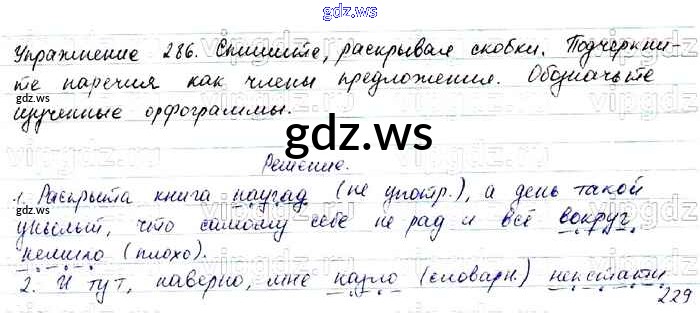 gdz.ws
Упражнение 286. Спишите, раскрывая скобки. Подчеркни-
те наречия как члены предложения. Обозначьте
изученные орфограммы.
gdz.ws
Решение.
1. Раскрыта книга наугад (не употр.), а день такой
унылый, что самому себе не рад и всё вокруг
немило (плохо).
2. И тут, наверно, мне назло (словарн.) некстати
229